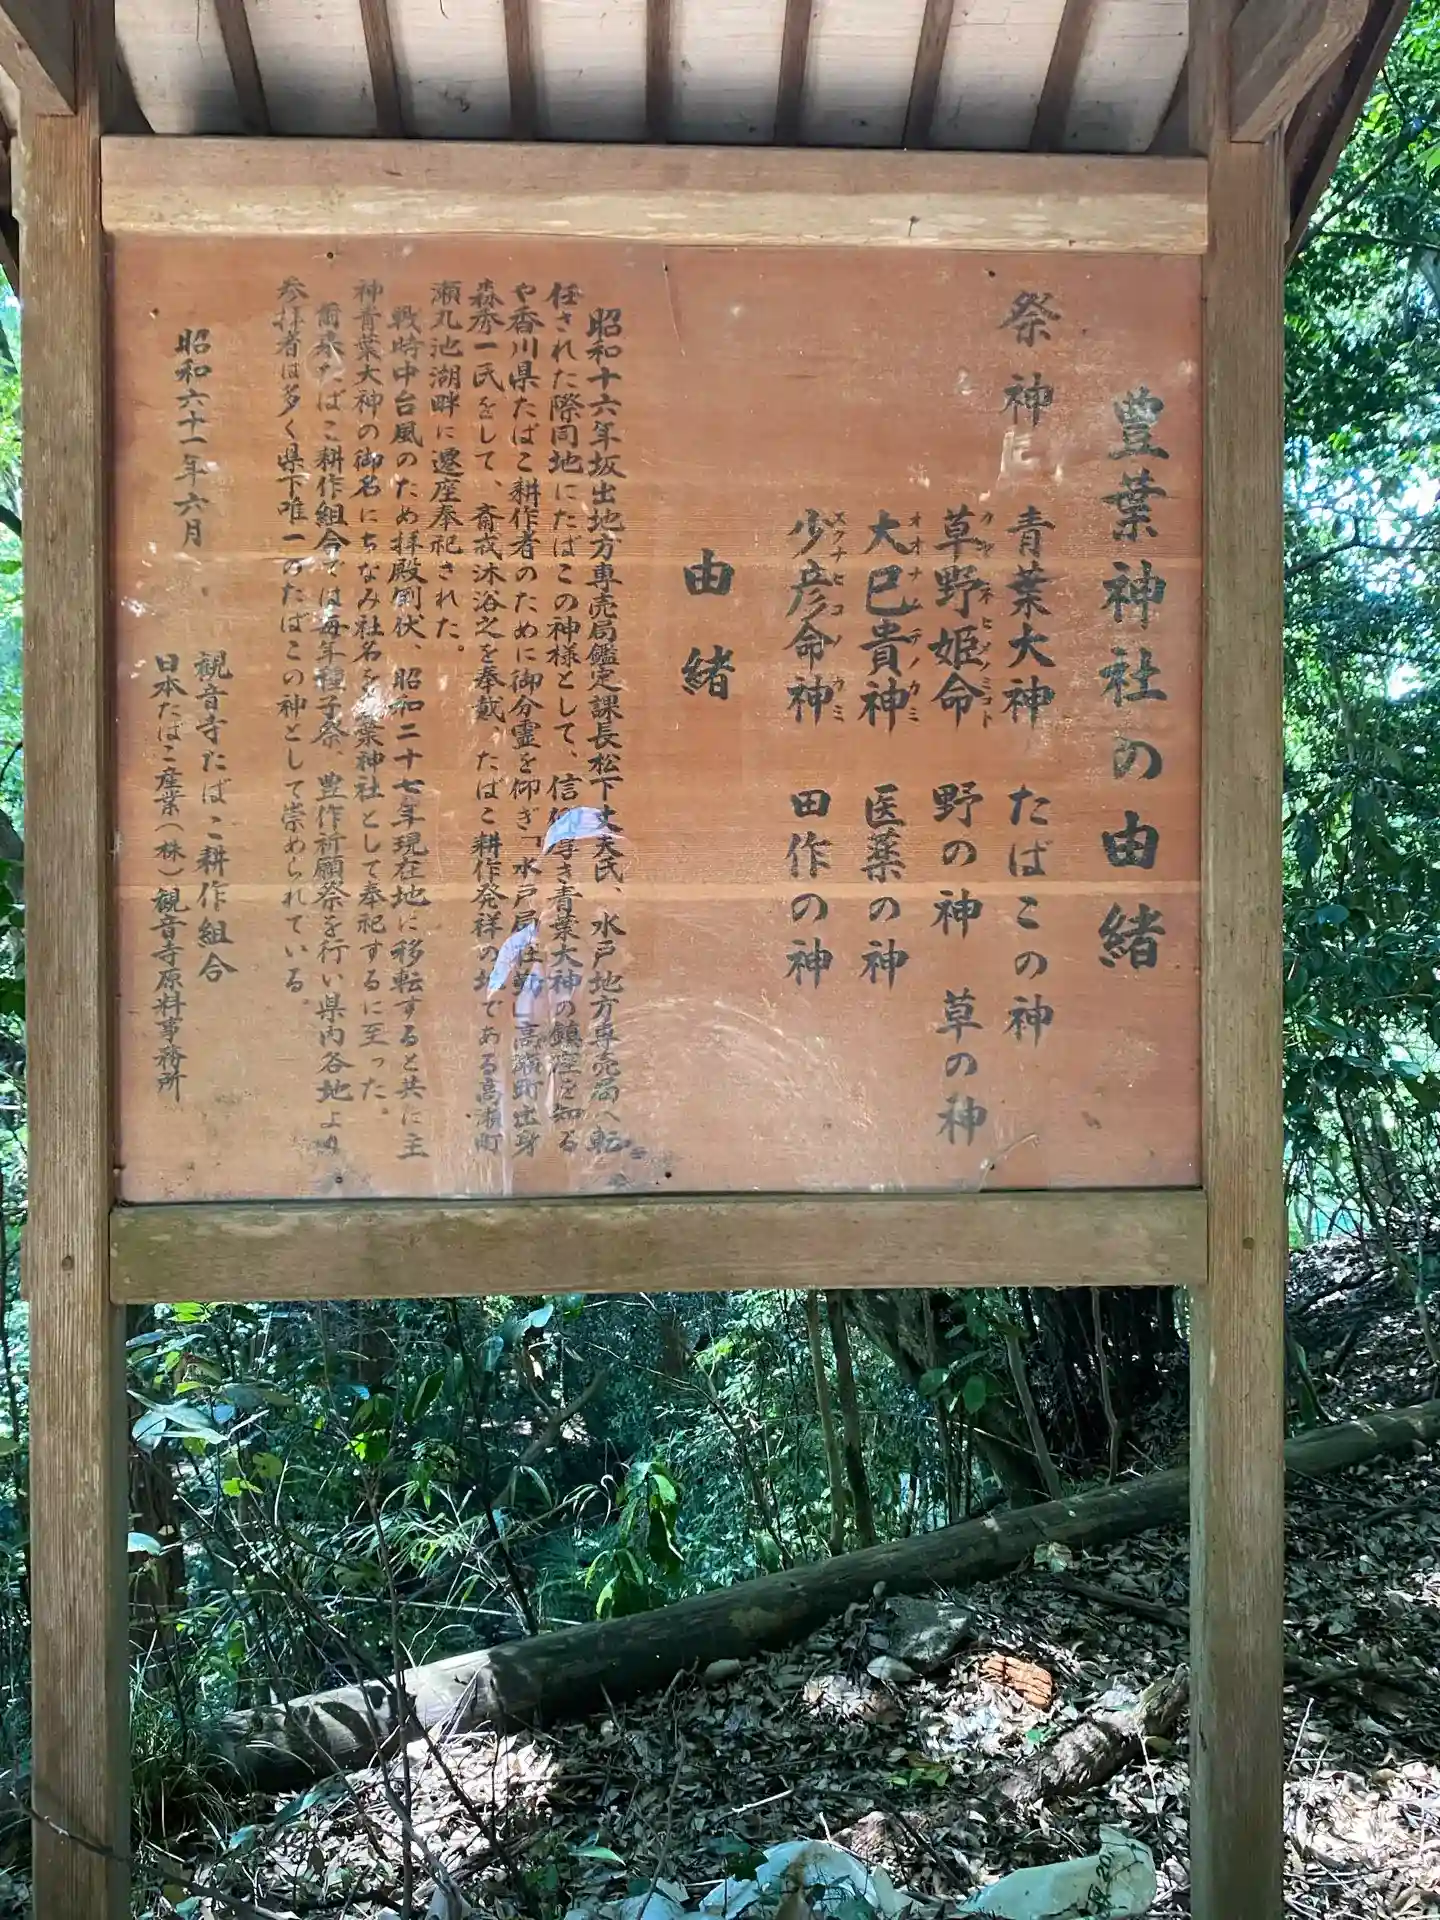 豊葉神社の由緒
祭神
青葉大神 たばこの神
草野姫命 野の神 草の神
カヤネヒメノミコト
大巳貴神 医薬の神
オオナムチノカミ
少彦命神 田作の神
スクナヒコノカミ
由緒
昭和十六年坂出地方専売局鑑定課長松下丈夫氏、水戸地方専売局へ転
任された際同地にたばこの神様として、信仰厚き青葉大神の鎮座を知る
や香川県たばこ耕作者のために御分霊を仰ぎ「水戸局在勤」高瀬町出身
森秀一氏をして、斎戒沐浴之を奉戴、たばこ耕作発祥の地である高瀬町
瀬丸池湖畔に遷座奉祀された。
戦時中台風のため拝殿倒伏、昭和二十七年現在地に移転すると共に主
神青葉大神の御名にちなみ社名を 葉神社として奉祀するに至った。
爾来たばこ耕作組合では毎年種子祭、豊作祈願祭を行い県内各地より
参拝者は多く県下唯一のたばこの神として崇められている。
昭和六十一年六月
観音寺たばこ耕作組合
日本たばこ産業(株)観音寺原料事務所